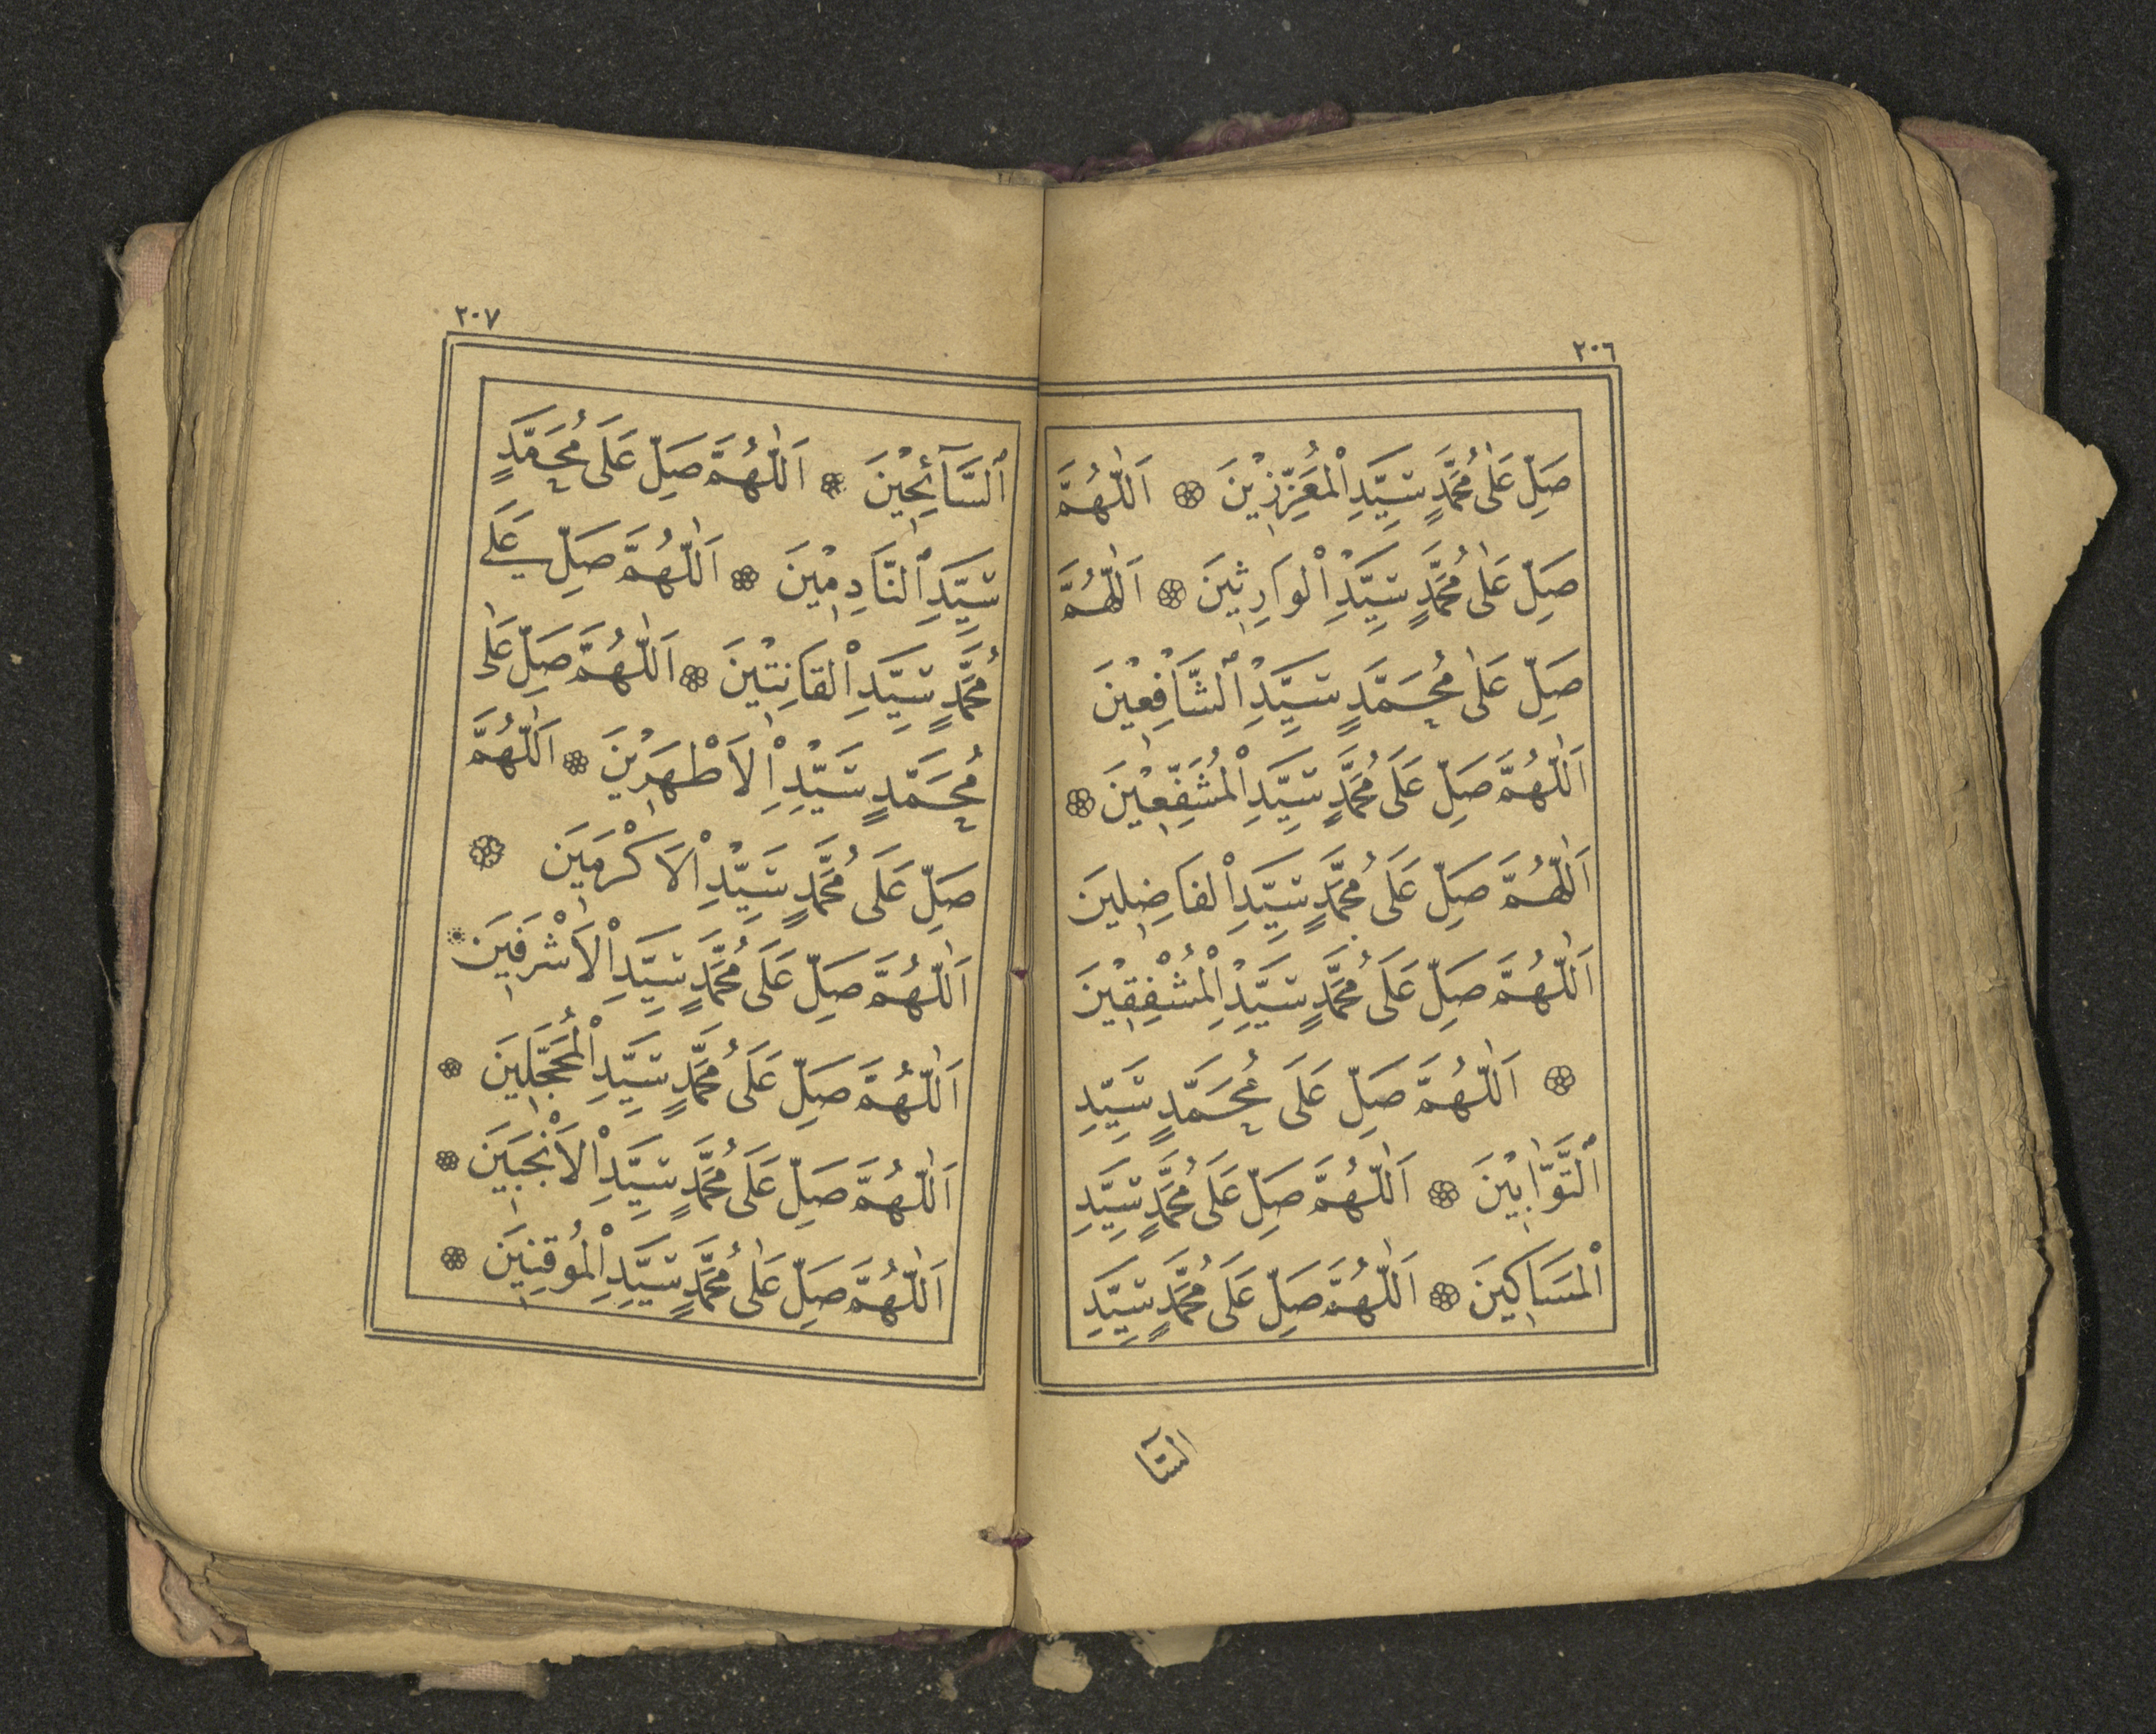 ٢٠٦
صَلِّ عَلٰى مُحَمَّدٍ سَيِّدِ الْمُعَزِّزِيْنَ ۞ اَللّٰهُمَّ
صَلِّ عَلٰى مُحَمَّدٍ سَيِّدِ الْوَارِثِينَ ۞ اَللّٰهُمَّ
صَلِّ عَلٰى مُحَمَّدٍ سَيِّدِ الشَّافِعِيْنَ
اَللّٰهُمَّ صَلِّ عَلَى مُحَمَّدٍ سَيِّدِ الْمُشَفِّعِيْنَ ۞
اَللّٰهُمَّ صَلِّ عَلَى مُحَمَّدٍ سَيِّدِ الْفَاضِلِينَ
اَللّٰهُمَّ صَلِّ عَلَى مُحَمَّدٍ سَيِّدِ الْمُشْفِقِيْنَ
۞ اَللّٰهُمَّ صَلِّ عَلَى مُحَمَّدٍ سَيِّدِ
التَّوَّابِيْنَ ۞ اَللّٰهُمَّ صَلِّ عَلَى مُحَمَّدٍ سَيِّدِ
الْمَسَاكِينَ ۞ اَللّٰهُمَّ صَلِّ عَلَى مُحَمَّدٍ سَيِّدِ
السَّآ
٢٠٧
السَّآئِحِيْنَ ۞ اَللّٰهُمَّ صَلِّ عَلَى مُحَمَّدٍ
سَيِّدِ النَّادِمِيْنَ ۞ اَللّٰهُمَّ صَلِّ عَلَى
مُحَمَّدٍ سَيِّدِ الْقَانِتِيْنَ ۞ اَللّٰهُمَّ صَلِّ عَلٰى
مُحَمَّدٍ سَيِّدِ الْاَطْهَرِيْنَ ۞ اَللّٰهُمَّ
صَلِّ عَلَى مُحَمَّدٍ سَيِّدِ الْاَكْرَمِينَ ۞
اَللّٰهُمَّ صَلِّ عَلَى مُحَمَّدٍ سَيِّدِ الْاَشْرَفِينَ ۞
اَللّٰهُمَّ صَلِّ عَلَى مُحَمَّدٍ سَيِّدِ الْمُحَجَّلِينَ ۞
اَللّٰهُمَّ صَلِّ عَلَى مُحَمَّدٍ سَيِّدِ الْاَنْجَبِينَ ۞
اَللّٰهُمَّ صَلِّ عَلٰى مُحَمَّدٍ سَيِّدِ الْمُوقِنِينَ ۞